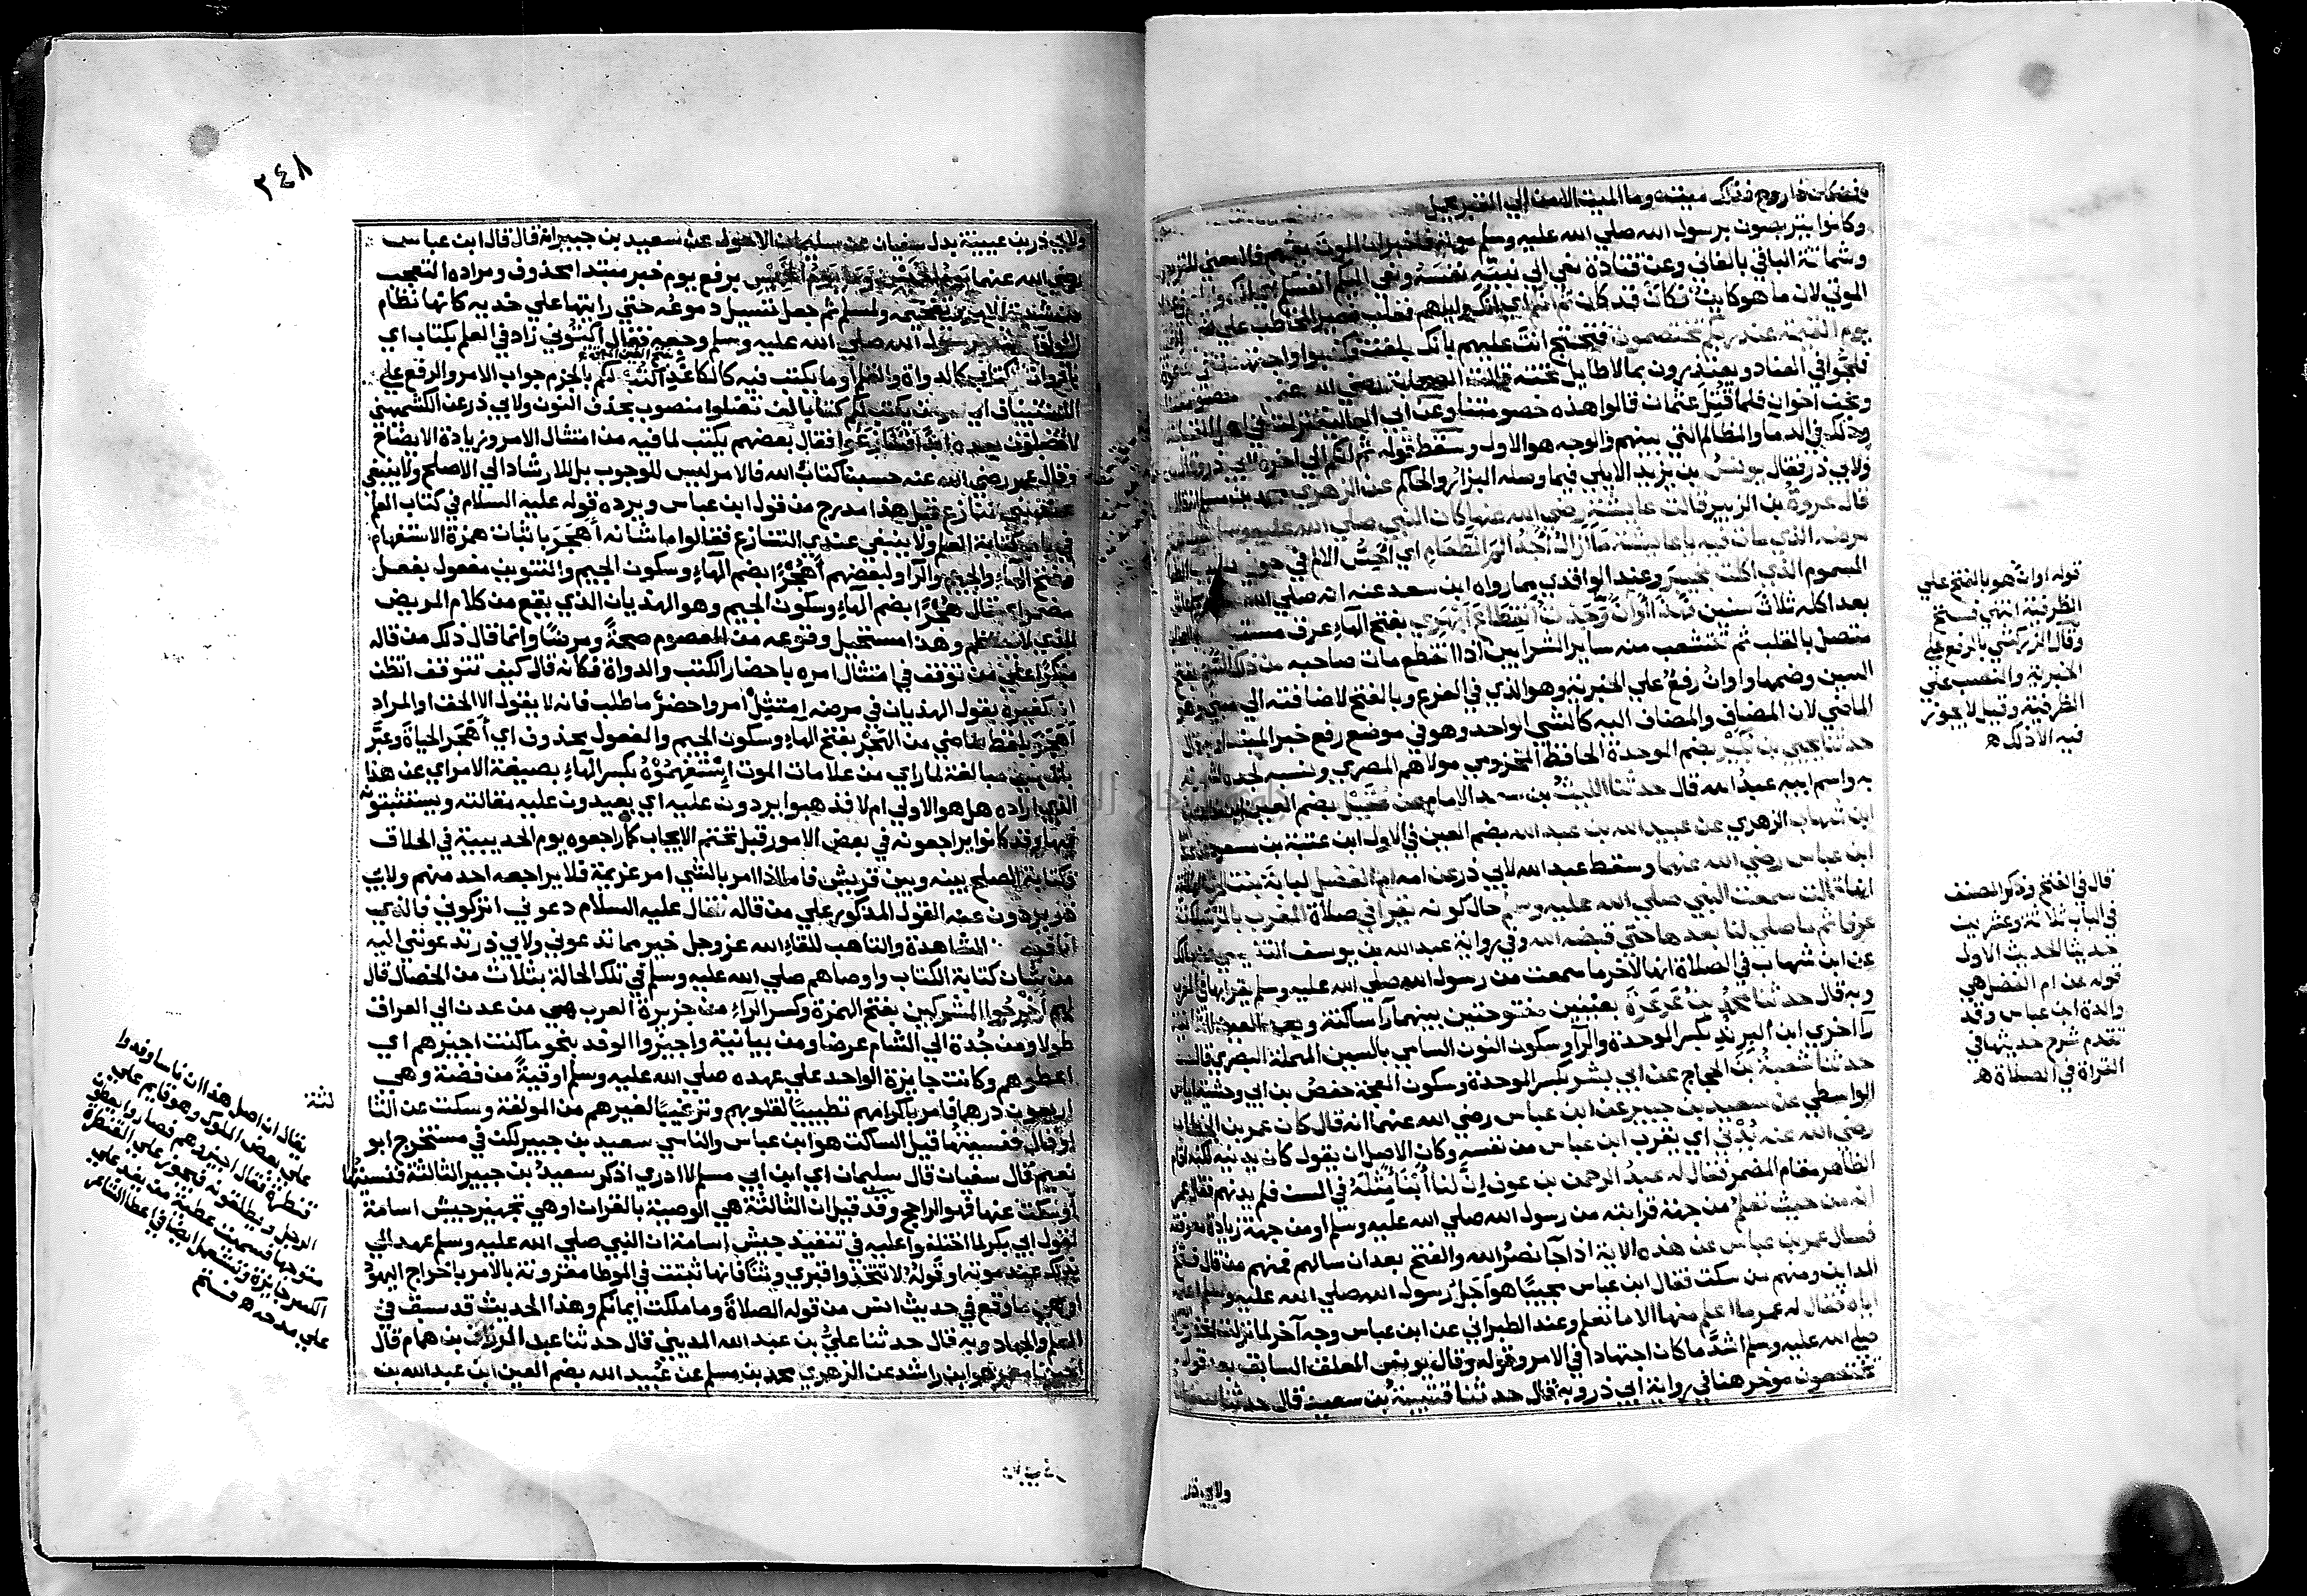 فمن كان ذا روح فذلك ميت وما الميت الا من الي القبر يحمل
وكانوا يتربصون برسول الله صلي الله عليه وسلم موته فاخبر ان الموت يعمهم فلا معني للتربص
وشماتة الباقي بالفاني وعن قتادة نعي الي نبيه نفسه ونعي اليكم انفسكم
الموتي لان ما هو كاين فكان قد كان ثم انكم اي انك واياهم فغلب ضمير المخاطب علي
يوم القيمة عند ربكم تختصمون فتحتج انت عليهم بانك بلغت فكذبوا واجتهدت
فلجوا في العناد ويعتذرون بما لا طايل تحته قالت الصحابة رضي الله عنهم
ونحن اخوان فلما قتل عثمان قالوا هذه خصومتنا وعن ابي العالية نزلت في اهل القبلة
وذلك في الدما والمظالم التي بينهم والوجه هو الاول وسقط قوله ثم انكم الي اخره لابي ذر وقال
ولابي ذر فقال يونس بن يزيد الايلي فيما وصله البزار والحاكم عن الزهري محمد بن مسلم انه قال
قال عروة بن الزبير قالت عايشة رضي الله عنها كان النبي صلي الله عليه وسلم يقول في
مرضه الذي مات فيه يا عايشة ما ازال اجد الم الطعام اي احس الالم في جوفي بسبب الطعام
المسموم الذي اكلت بخيبر وعند الواقدي مما رواه ابن سعد عنه انه صلي الله
بعد اكله ثلاث سنين فهذا اوان وجدت انقطاع ابهري بفتح الهاء عرق مستبطن
متصل بالقلب ثم تتشعب منه ساير الشرايين اذا انقطع مات صاحبه من ذلك السم بفتح
السين وضمها واوان رفع علي الخبرية وهو الذي في الفرع وبالفتح لاضافته الي مبني وهو
الماضي لان المضاف والمضاف اليه كالشي الواحد وهو في موضع رفع خبر المبتدا وبه قال
حدثنا يحيي بن بكير بضم الموحدة الحافظ المخزومي مولاهم المصري ونسبه لجده لشهرته
به واسم ابيه عبد الله قال حدثنا الليث بن سعد الامام عن عقيل بضم العين ابن خالد عن
ابن شهاب الزهري عن عبيد الله بن عبد الله بضم العين في الاول ابن عتبة بن مسعود عن عبد
ابن عباس رضي الله عنهما وسقط عبد الله لابي ذر عن امه ام الفضل لبابة بنت الحارث
انها قالت سمعت النبي صلي الله عليه وسلم حال كونه يقرا في صلاة المغرب بالمرسلات
عرفا ثم ما صلي لنا بعدها حتي قبضه الله وفي رواية عبد الله بن يوسف التنيسي عن مالك
عن ابن شهاب في الصلاة انها لاخر ما سمعت من رسول الله صلي الله عليه وسلم يقرا بها في المغرب
وبه قال حدثنا محمد بن عرعرة بعينين مفتوحتين بينهما را ساكنة وبعد العين الثانية
را اخري ابن البرند بكسر الموحدة والرا وسكون النون السامي بالسين المهملة البصري قال
حدثنا شعبة بن الحجاج عن ابي بشر بكسر الموحدة وسكون المعجمة جعفر بن ابي وحشية اياس
الواسطي عن سعيد بن جبير عن ابن عباس رضي الله عنهما انه قال كان عمر بن الخطاب
رضي الله عنه يدني اي يقرب ابن عباس من نفسه وكان الاصل ان يقول كان يدنيه لكنه اقام
الظاهر مقام المضمر فقال له عبد الرحمن بن عوف ان لنا ابنا مثله في السن فلم يدنهم فقال عمر
انه من حيث تعلم من جهة قرابته من رسول الله صلي الله عليه وسلم او من جهة زيادة معرفته
فسال عمر بن عباس عن هذه الاية اذا جا نصر الله والفتح بعد ان سالهم فمنهم من قال فتح
المداين ومنهم من سكت فقال ابن عباس مجيبا هو اجل رسول الله صلي الله عليه وسلم اعلمه
اياه فقال له عمر ما اعلم منها الا ما تعلم وعند الطبراني عن ابن عباس وجه آخر لما نزلت
صلي الله عليه وسلم اشد ما كان اجتهادا في الامر وقوله وقال يونس المعلق السابق بعد قوله
تختصمون موخر هنا في رواية ابي ذر وبه قال حدثنا قتيبة بن سعيد قال حدثنا سفيان
ولابي ذر
قوله اوان هو بالفتح علي
الظرفية انتهي فستح
وقال الزركشي بالرفع علي
الخبرية والنصب علي
الظرفية وقيل لا يجوز
فيه الا ذلك ه
قال في الفتح وذكر المصنف
في الباب ثلاثة وعشرين
حديثا الحديث الاول
قوله عن ام الفضل هي
والدة ابن عباس وقد
تقدم شرح حديثها في
القراة في الصلاة ه
٢٤٨
ولابي ذر بن عيينة بدل سفيان عن سليمان الاحول عن سعيد بن جبير انه قال قال ابن عباس
رضي الله عنهما يوم الخميس وما يوم الخميس برفع يوم خبر مبتدا محذوف ومراده التعجب
من شدة الامر وتفخيمه ولمسلم ثم جعل تسيل دموعه حتي رايتها علي خديه كانها نظام
اللولو اشتد برسول الله صلي الله عليه وسلم وجعه فقال ائتوني زاد في العلم بكتاب اي
بادوات كتاب كالدواة والقلم او ما يكتب فيه كالكاغد اكتب لكم بالجزم جواب الامر والرفع علي
الاستيناف اي امر من يكتب لكم كتابا لن تضلوا منصوب بحذف النون ولابي ذر عن الكشميهني
لا تضلون بعده ابدا فتنازعوا فقال بعضهم يكتب لما فيه من امتثال الامر وزيادة الايضاح
وقال عمر رضي الله عنه حسبنا كتاب الله فالامر ليس للوجوب بل للارشاد الي الاصلح ولا ينبغي
عند نبي تنازع قيل هذا مدرج من قول ابن عباس ويرده قوله عليه السلام في كتاب العلم
في باب كتابة العلم ولا ينبغي عندي التنازع فقالوا ما شانه اهجر باثبات همزة الاستفهام
وفتح الهاء والجيم والرا ولبعضهم اهجرا بضم الهاء وسكون الجيم والتنوين مفعول بفعل
مضمر اي قال هجرا بضم الهاء وسكون الجيم وهو الهذيان الذي يقع من كلام المريض
الذي لا ينتظم وهذا مستحيل وقوعه من المعصوم صحة ومرضا وانما قال ذلك من قاله
منكرا علي من توقف في امتثال امره باحضار الكتف والدواة فكانه قال كيف تتوقف اتظن
انه كغيره يقول الهذيان في مرضه امتثل امره واحضر ما طلب فانه لا يقول الا الحق او المراد
اهجر بلفظ الماضي من الهجر بفتح الهاء وسكون الجيم والمفعول محذوف اي اهجر الحياة وعبر
بالماضي مبالغة لما راي من علامات الموت استفهموه بكسر الهاء بصيغة الامر اي عن هذا
الذي اراده هل هو الاولي ام لا فذهبوا يردون عليه اي يعيدون عليه مقالته ويستثبتونه
فيها وقد كانوا يراجعونه في بعض الامور قبل تحتم الايجاب كما راجعوه يوم الحديبية في الحلاق
وكتابة الصلح بينه وبين قريش فاما اذا امر بالشي امر عزيمة فلا يراجعه احد منهم ولابي
ذر يردون عنه القول المذكور علي من قاله فقال عليه السلام دعوني اتركوني فالذي
انا فيه المشاهدة والتاهب للقاء الله عز وجل خير مما تدعوني ولابي ذر تدعونني اليه
من شان كتابة الكتاب واوصاهم صلي الله عليه وسلم في تلك الحالة بثلاث من الخصال قال
لهم اخرجوا المشركين بفتح الهمزة وكسر الراء من جزيرة العرب هي من عدن الي العراق
طولا ومن جدة الي الشام عرضا ومن بيانية واجيزوا الوفد بنحو ما كنت اجيزهم اي
اعطوهم وكانت جايزة الواحد علي عهده صلي الله عليه وسلم اوقية من فضة وهي
اربعون درهما فامر باكرامهم تطييبا لقلوبهم وترغيبا لغيرهم من المولفة وسكت عن الثالثة
او قال فنسيتها قيل الساكت هو ابن عباس والناسي سعيد بن جبير لكن في مستخرج ابو
نعيم قال سفيان قال سليمان اي ابن ابي مسلم لا ادري اذكر سعيد بن جبير الثالثة فنسيتها
او سكت عنها فهو الراجح وقد قيل ان الثالثة هي الوصية بالقران او هي تجهيز جيش اسامة
لقول ابي بكر لما اختلفوا عليه في تنفيذ جيش اسامة ان النبي صلي الله عليه وسلم عهد الي
بذلك عند موته او قوله لا تتخذوا قبري وثنا فانها ثبتت في الموطا مقرونة بالامر باخراج اليهود
او هي ما وقع في حديث انس من قوله الصلاة وما ملكت ايمانكم وهذا الحديث قد سبق في
العلم والجهاد وبه قال حدثنا علي بن عبد الله المديني قال حدثنا عبد الرزاق بن همام قال
اخبرنا معمر هو ابن راشد عن الزهري محمد بن مسلم عن عبيد الله بضم العين ابن عبد الله بن
يقال ان اصل هذا ان ناسا وفدوا
علي بعض الملوك وهو قايم علي
قنطرة فقال اجيزوهم فصاروا يعطون
الرجل ويطلقونه فيجوز علي القنطرة
متوجها فسميت عطية من يفد علي
الكبير جايزة وتستعمل ايضا في اعطا الشاعر
علي مدحه ه فستح